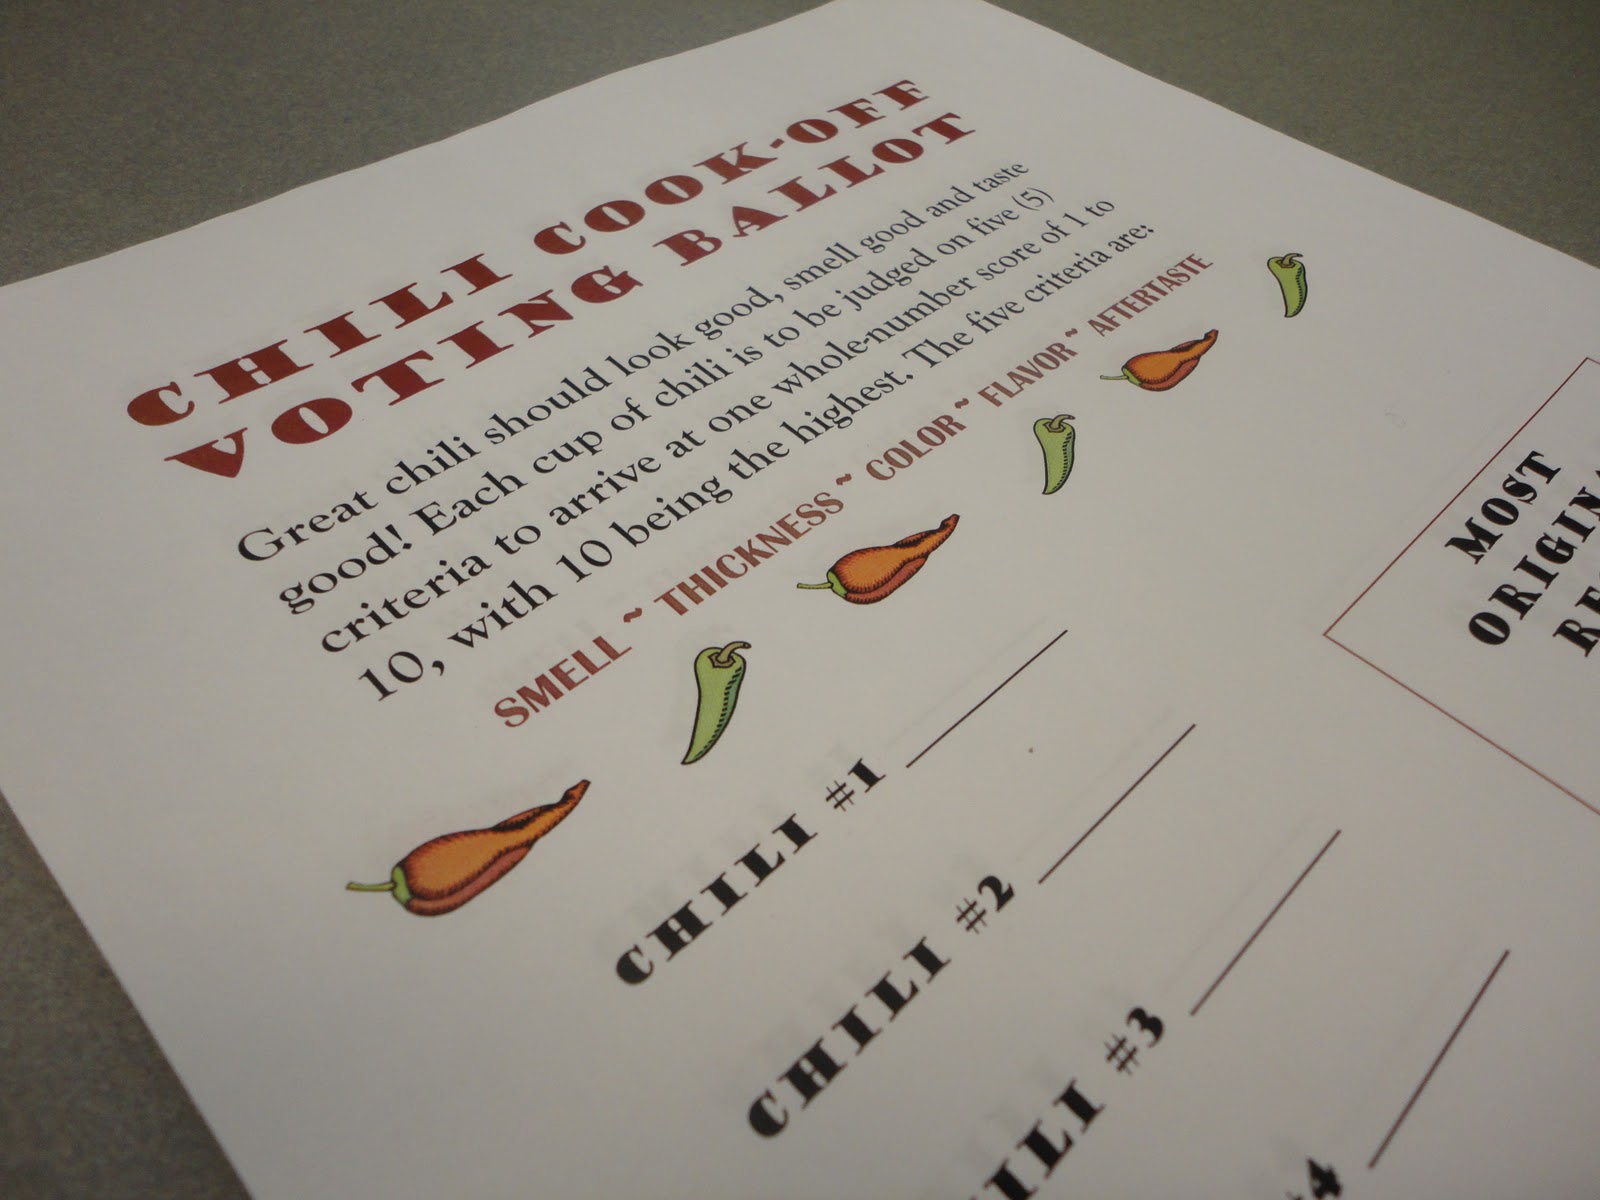 CHILI COOK-OFF
VOTING BALLOT
Great chili should look good, smell good and taste
good! Each cup of chili is to be judged on five (5)
criteria to arrive at one whole-number score of 1 to
10, with 10 being the highest. The five criteria are:
SMELL ~ THICKNESS ~ COLOR ~ FLAVOR ~ AFTERTASTE
CHILI #1
CHILI #2
CHILI #3
#4
MOST